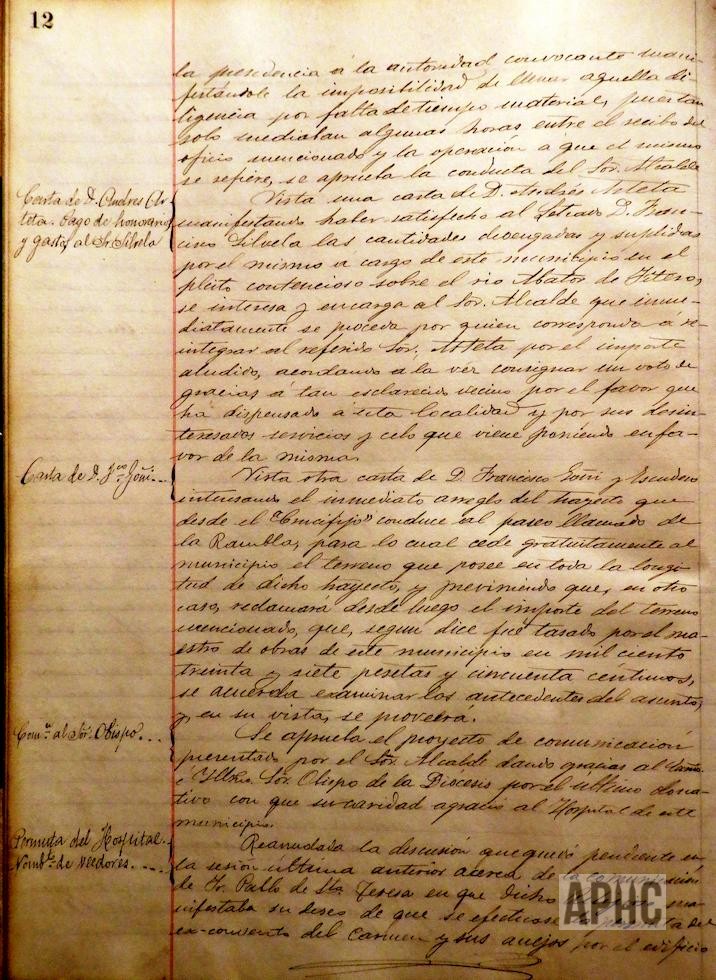 12
la presidencia á la autoridad convocante mani-
festándole la imposibilidad de llenar aquella di-
ligencia por falta de tiempo material, pues tan
solo mediaban algunas horas entre el recibo del
oficio mencionado y la operación a que el mismo
se refiere, se aprueba la conducta del Sor. Alcalde
Carta de D. Andres Ar-
teta. Pago de honorarios
y gastos al Sr. Silvela
Vista una carta de D. Andrés Arteta
manifestando haber satisfecho al Letrado D. Fran-
cisco Silvela las cantidades devengadas y suplidas
por el mismo a cargo de este municipio en el
pleito contencioso sobre el rio Abatores de Fitero,
se interesa y encarga al Sor. Alcalde que inme-
diatamente se proceda por quien corresponda á re-
integrar al referido Sor. Arteta por el importe
aludido, acordando a la vez consignar un voto de
gracias á tan esclarecido vecino por el favor que
ha dispensado á esta localidad y por sus desin-
teresados servicios y celo que viene poniendo en fa-
vor de la misma.
Carta de D. Fco. Goñi
Vista otra carta de D. Francisco Goñi y Escudero
interesando el inmediato arreglo del trayecto que
desde el "Crucifijo" conduce al paseo llamado de
la Rambla, para lo cual cede gratuitamente al
municipio el terreno que posee en toda la longi-
tud de dicho trayecto, y previniendo que, en otro
caso, reclamará desde luego el importe del terreno
mencionado, que, segun dice fué tasado por el ma-
estro de obras de este municipio en mil ciento
treinta y siete pesetas y cincuenta céntimos,
se acuerda examinar los antecedentes del asunto,
y, en su vista, se proveerá.
Comn. al Sor. Obispo
Se aprueba el proyecto de comunicación
presentado por el Sor. Alcalde dando gracias al Exmo.
é Iltmo. Sor. Obispo de la Diocesis por el último dona-
tivo con que su caridad agració al Hospital de este
municipio.
Permuta del Hospital.
Nombto. de veedores
Reanudada la discusión que quedó pendiente en
la sesión última anterior acerca de la comunicación
de Fr. Pablo de Sta. Teresa en que dicho ma-
nifestaba su deseo de que se efectuose la permuta del
ex-convento del Carmen y sus anejos por el edificio
APHC